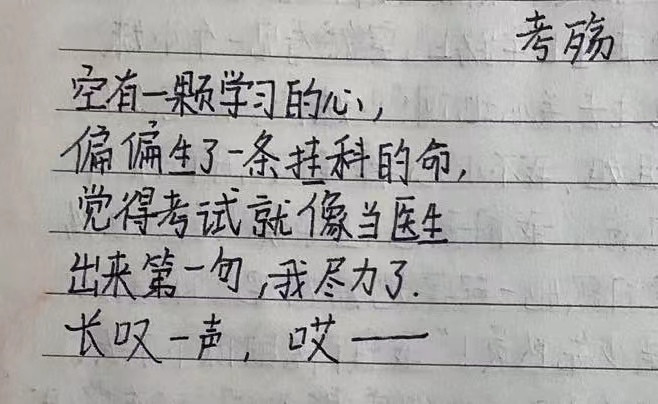 考殇
空有一颗学习的心,
偏偏生了一条挂科的命,
觉得考试就像当医生
出来第一句,我尽力了.
长叹一声, 哎——